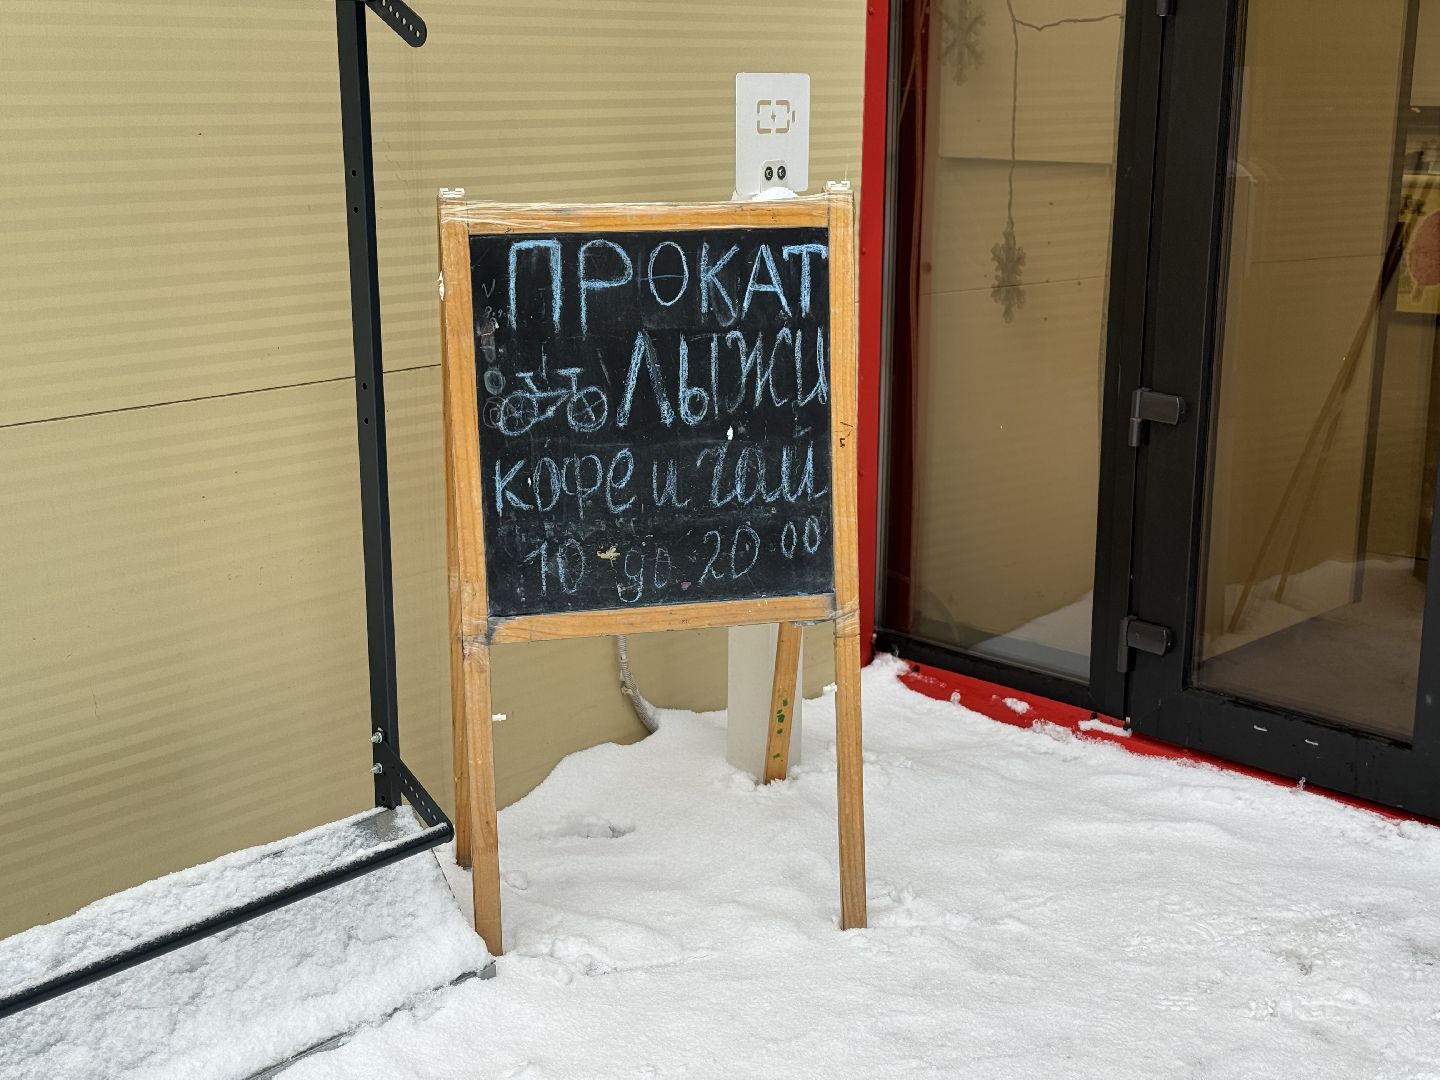 ПРОКАТ
ЛЫЖИ
кофе и чай
10 до 20 00